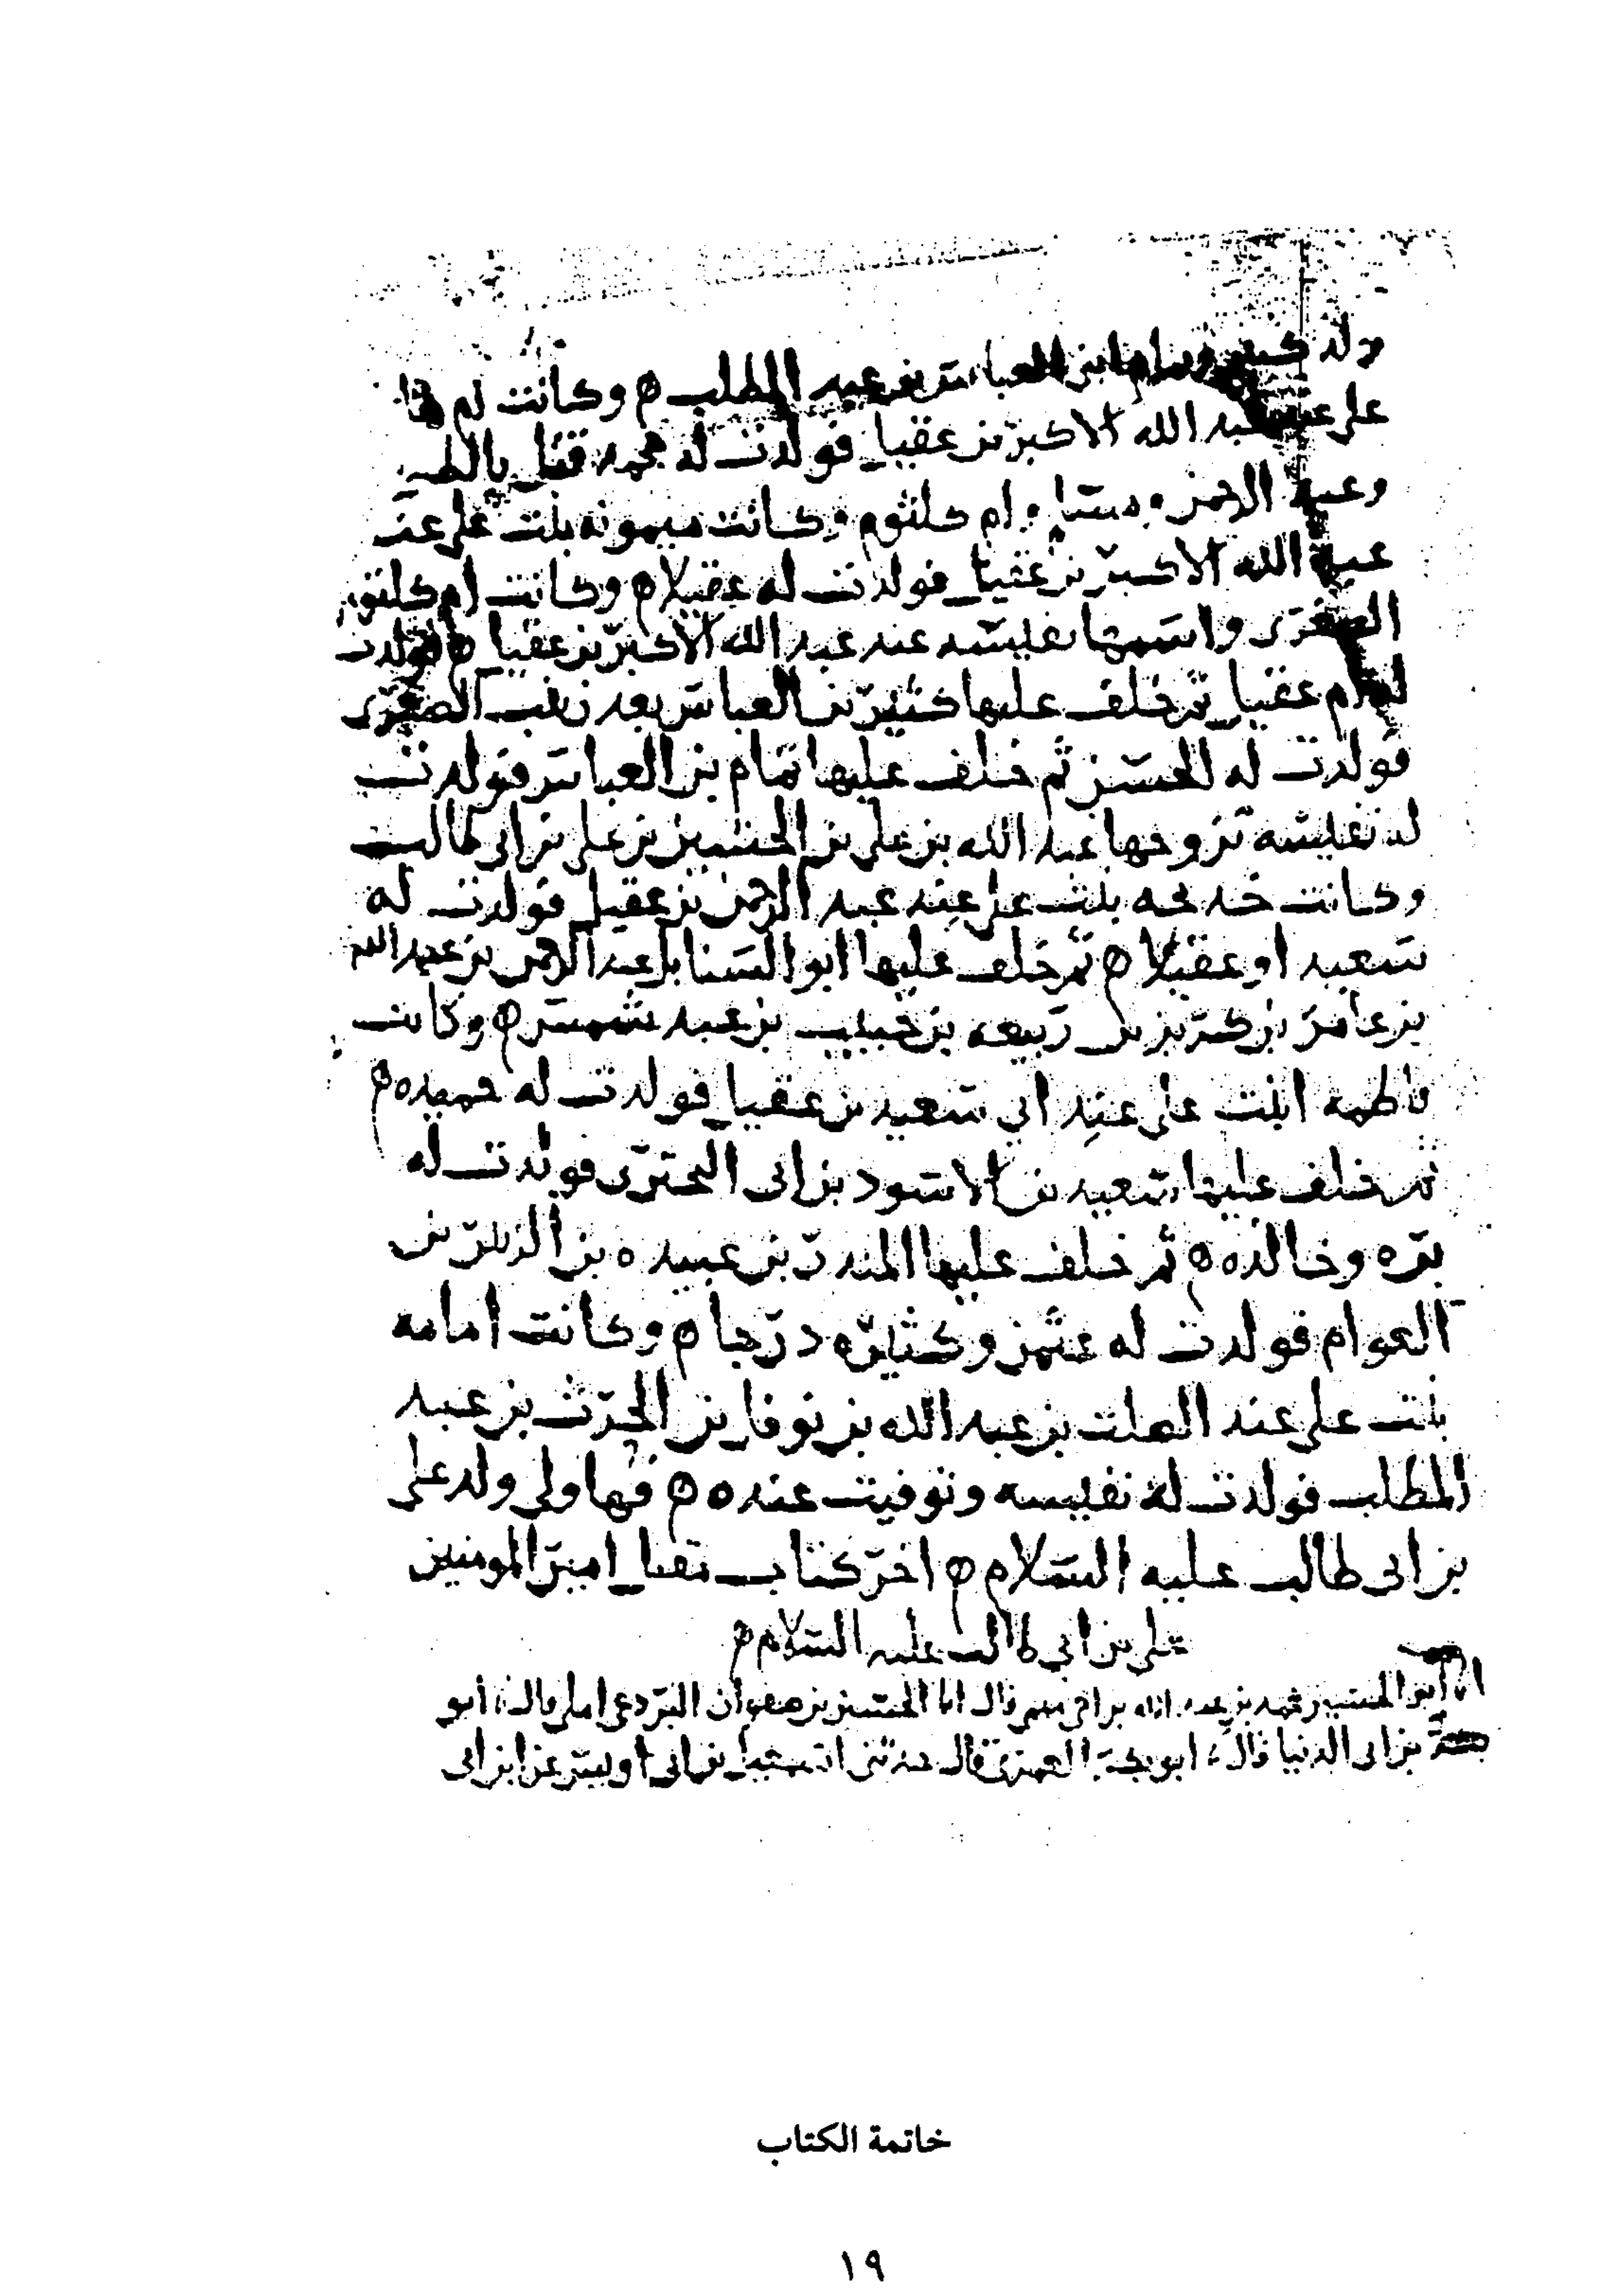 ولد العباس بن عبد المطلب ه وكانت ام هانى
على عند عبد الله الاكبر بن عقيل فولدت له محمد قتل بالطف
وعبد الرحمن ومسلما وام كلثوم وكانت ميمونه بنت على عند
عبد الله الاكبر بن عقيل فولدت له عقيلا ه وكانت ام كلثوم
الصغرى واسمها نفيسه عند عبد الله الاكبر بن عقيل ه فولدت
له ام عقيل ثم خلف عليها كثير بن العباس بعد زينب الصغرى
فولدت له الحسن ثم خلف عليها تمام بن العباس فولدت
له نفيسه تزوجها عبد الله بن على بن الحسين بن على بن ابى طالب
وكانت خديجه بنت على عند عبد الرحمن بن عقيل فولدت له
سعيد او عقيلا ه ثم خلف عليها ابو السنابل عبد الرحمن بن عبد الله
بن عامر بن كريز بن ربيعه بن حبيب بن عبد شمس ه وكانت
فاطمه ابنت على عند ابي سعيد بن عقيل فولدت له حميده ه
ثم خلف عليها سعيد بن الاسود بن ابى البحترى فولدت له
بره وخالده ه ثم خلف عليها المنذر بن عبيده بن الزبير بن
العوام فولدت له عثمن وكثيره درجا ه وكانت امامه
بنت على عند الصلت بن عبد الله بن نوفل بن الحرث بن عبد
المطلب فولدت له نفيسه وتوفيت عنده ه فهاولى ولد على
بن ابى طالب عليه السلام ه اخر كتاب مقتل امير المومنين
على بن ابي طالب عليه السلام ه
انا ابو الحسين محمد بن عبد الله بن اخى ميمى قال انا الحسين بن صفوان البردعى املى قال ابو
بكر بن ابى الدنيا قال ابو بكر العمرى قال حدثنى اسمعيل بن ابى اويس عن ابن ابى
خاتمة الكتاب
١٩